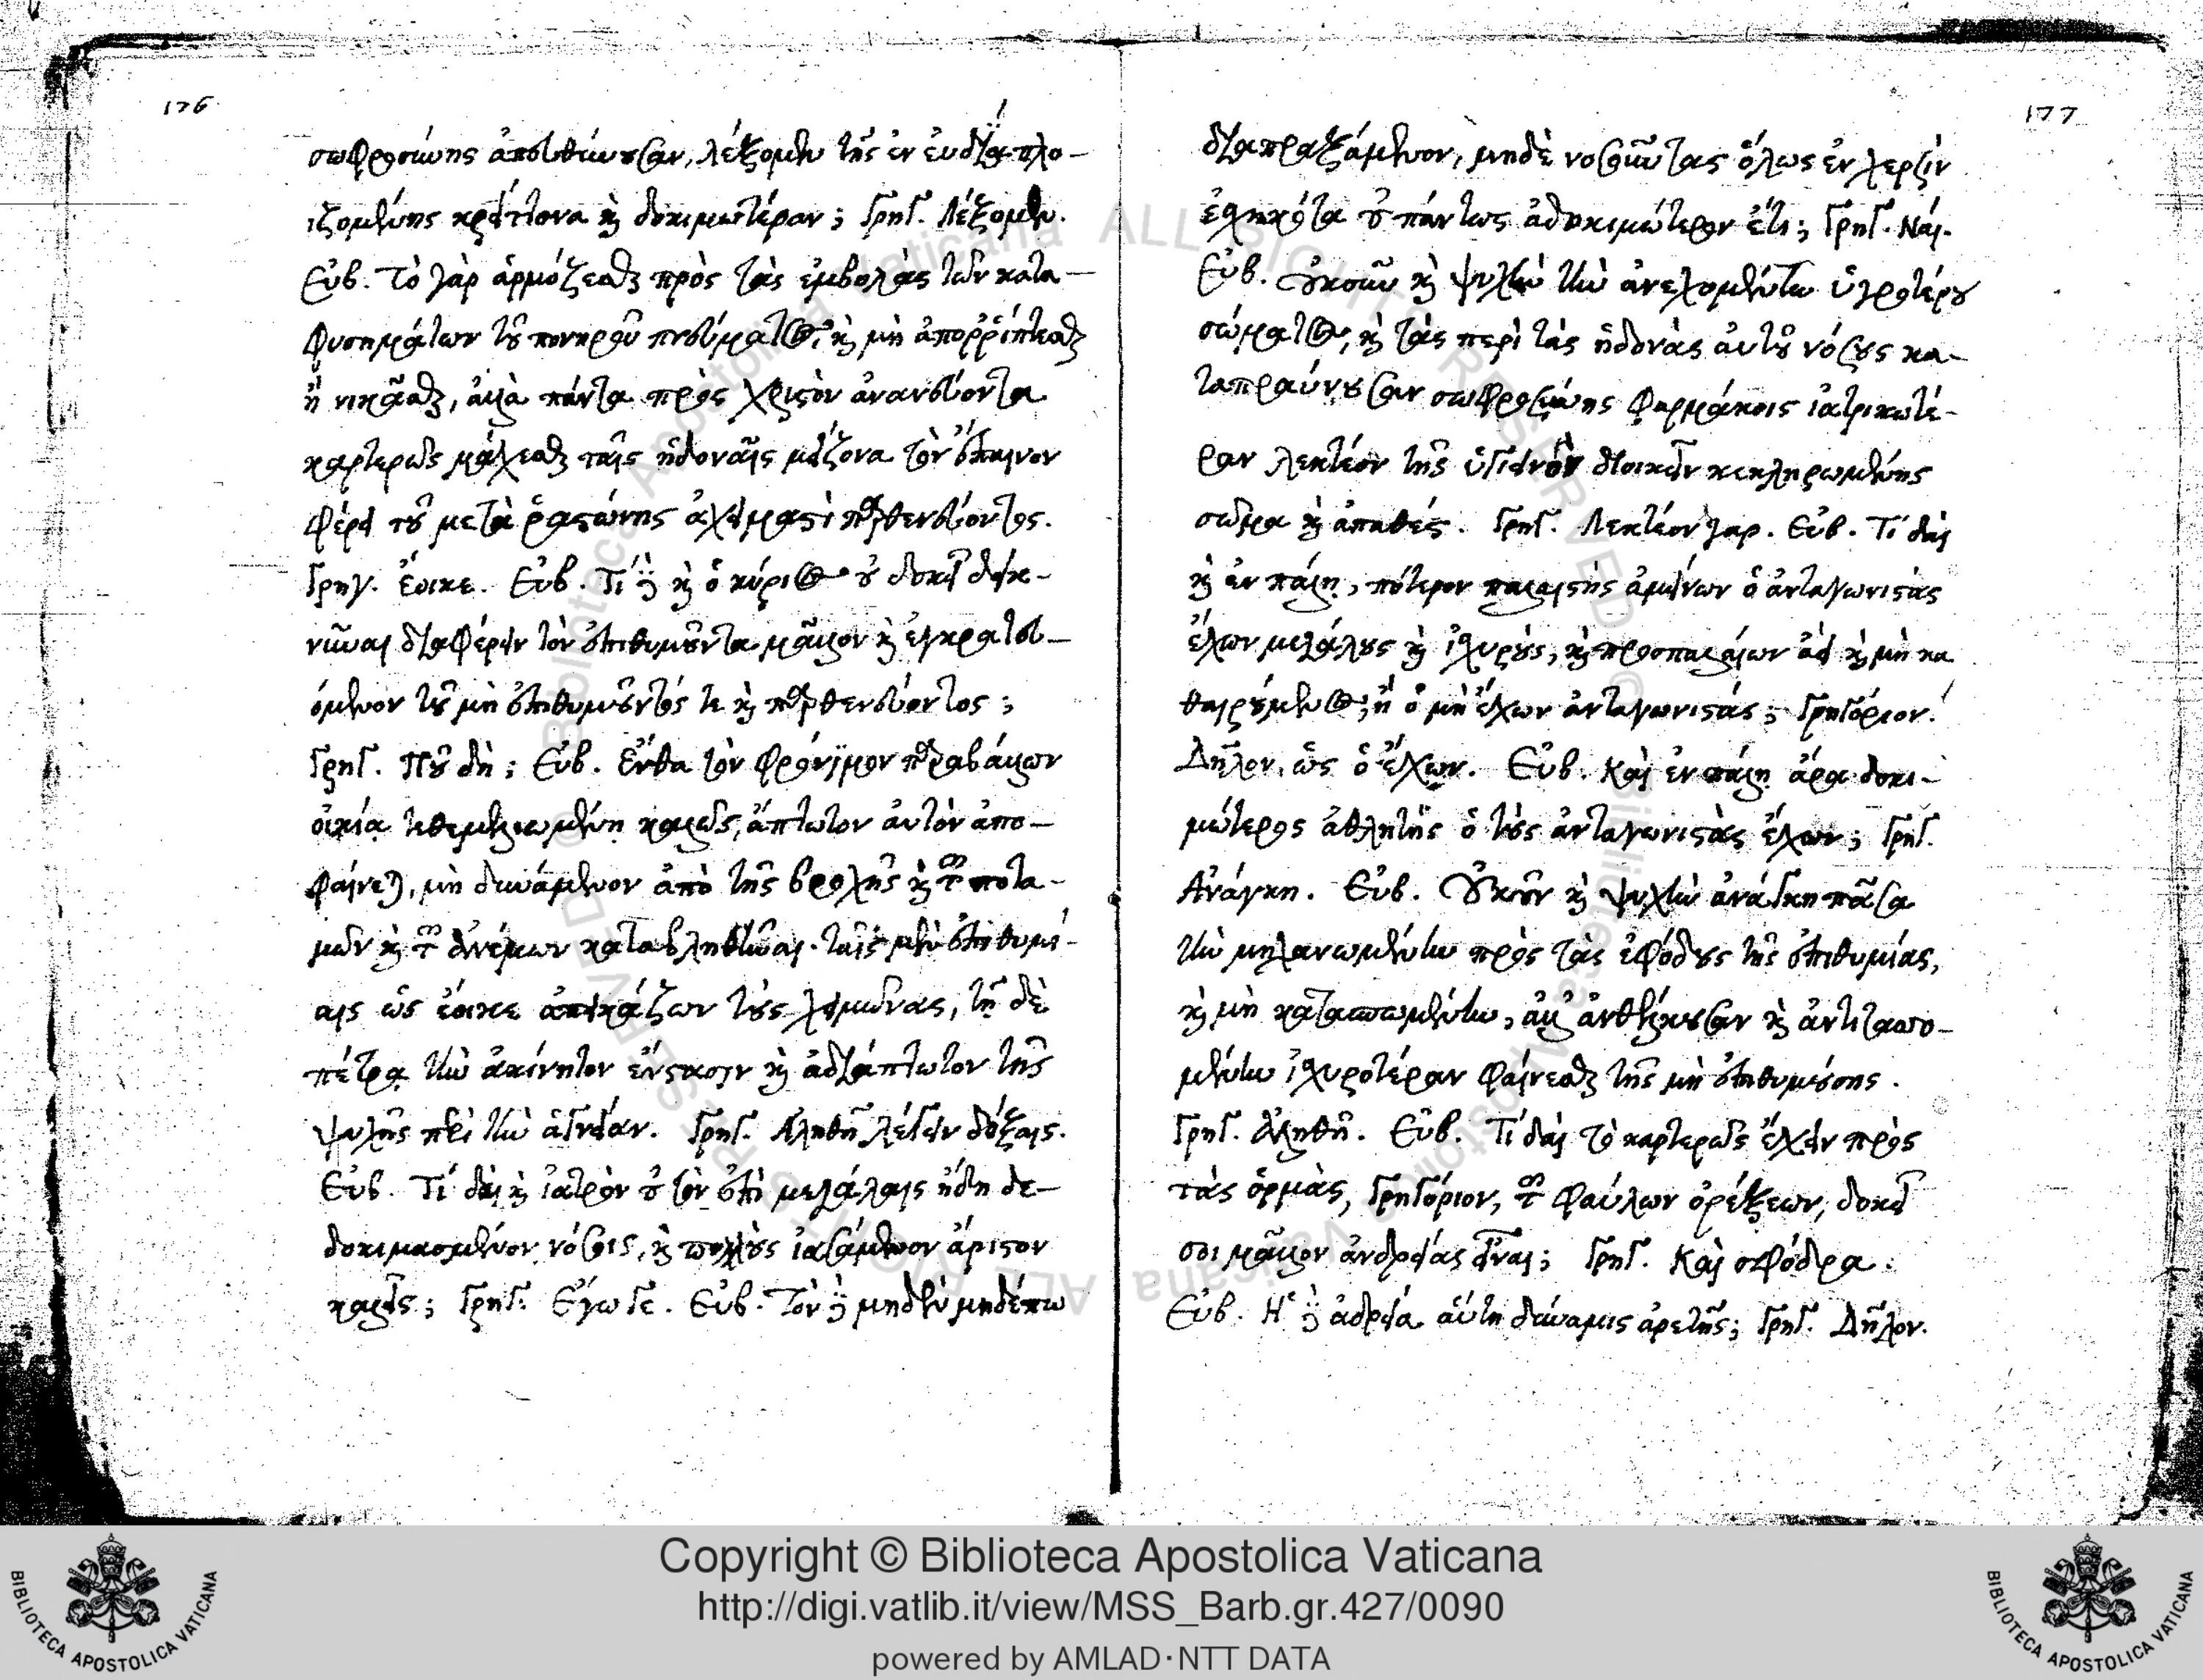 176
σωφροσύνης ἀπευθύνουσαν, λέξομεν τῆς ἐν εὐδίᾳ πλο-
ιζομένης κρείττονα καὶ δοκιμωτέραν; Γρηγ. Λέξομεν.
Εὐβ. Τὸ γὰρ ἁρμόζεσθαι πρὸς τὰς ἐμβολὰς τῶν κατα-
φυσημάτων τοῦ πονηροῦ πνεύματος, καὶ μὴ ἀπορρίπτεσθαι
ἢ νικᾶσθαι, ἀλλὰ πάντα πρὸς Χριστὸν ἀνανεύοντα
καρτερῶς μάχεσθαι ταῖς ἡδοναῖς μείζονα τὸν ἔπαινον
φέρει τοῦ μετὰ ῥαστώνης ἀχειμαστὶ παρθενεύοντος.
Γρηγ. Ἔοικε. Εὐβ. Τί δὲ καὶ ὁ κύριος οὐ δοκεῖ δεικ-
νῦναι διαφέρειν τὸν ἐπιθυμοῦντα μᾶλλον καὶ ἐγκρατευ-
όμενον τοῦ μὴ ἐπιθυμοῦντός τε καὶ παρθενεύοντος;
Γρηγ. Ποῦ δή; Εὐβ. Ἔνθα τὸν φρόνιμον παραβάλλων
οἰκίᾳ τεθεμελιωμένῃ καλῶς, ἄπτωτον αὐτὸν ἀπο-
φαίνεται, μὴ δυνάμενον ἀπὸ τῆς βροχῆς καὶ τῶν ποτα-
μῶν καὶ τῶν ἀνέμων καταβληθῆναι· ταῖς μὲν ἐπιθυμί-
αις ὡς ἔοικε ἀπεικάζων τοὺς χειμῶνας, τῇ δὲ
πέτρᾳ τὴν ἀκίνητον ἔνστασιν καὶ ἀδιάπτωτον τῆς
ψυχῆς περὶ τὴν ἁγνείαν. Γρηγ. Ἀληθῆ λέγειν δόξαις.
Εὐβ. Τί δαὶ καὶ ἰατρὸν οὐ τὸν ἐπὶ μεγάλαις ἤδη δε-
δοκιμασμένον νόσοις, καὶ πολλοὺς ἰασάμενον ἄριστον
καλεῖς; Γρηγ. Ἔγωγε. Εὐβ. Τὸν δὲ μηδὲν μηδέπω
177
διαπραξάμενον, μηδὲ νοσοῦντας ὅλως ἐν χερσὶν
ἐσχηκότα οὐ πάντως ἀδοκιμώτερον ἔτι; Γρηγ. Ναί.
Εὐβ. Οὐκοῦν καὶ ψυχὴν τὴν ἀνελομένην ὑγροτέρου
σώματος, καὶ τὰς περὶ τὰς ἡδονὰς αὐτοῦ νόσους κα-
ταπραΰνουσαν σωφροσύνης φαρμάκοις ἰατρικωτέ-
ραν λεκτέον τῆς ὑγιεινὸν διοικεῖν κεκληρωμένης
σῶμα καὶ ἀπαθές. Γρηγ. Λεκτέον γαρ. Εὐβ. Τί δαὶ
καὶ ἐν πάλῃ, πότερον παλαιστὴς ἀμείνων ὁ ἀνταγωνιστὰς
ἔχων μεγάλους καὶ ἰσχυροὺς, καὶ προσπαλαίων ἀεὶ καὶ μὴ κα
θαιρούμενος, ἢ ὁ μὴ ἔχων ἀνταγωνιστάς; Γρηγόριον.
Δῆλον, ὡς ὁ ἔχων. Εὐβ. Καὶ ἐν πάλῃ ἄρα δοκι-
μώτερος ἀθλητὴς ὁ τοὺς ἀνταγωνιστὰς ἔχων; Γρηγ.
Ἀνάγκη. Εὐβ. Οὐκοῦν καὶ ψυχὴν ἀνάγκη πᾶσα
τὴν μηχανωμένην πρὸς τὰς ἐφόδους τῆς ἐπιθυμίας,
καὶ μὴ κατασπωμένην, ἀλλ' ἀνθέλκουσαν καὶ ἀντιτασσο-
μένην ἰσχυροτέραν φαίνεσθαι τῆς μὴ ἐπιθυμούσης.
Γρηγ. Ἀληθῆ. Εὐβ. Τί δαὶ τὸ καρτερῶς ἔχειν πρὸς
τὰς ὁρμὰς, Γρηγόριον, τῶν φαύλων ὀρέξεων, δοκεῖ
σοι μᾶλλον ἀνδρείας εἶναι; Γρηγ. Καὶ σφόδρα.
Εὐβ. Ἡ δὲ ἀδρεία αὕτη δύναμις ἀρετῆς; Γρηγ. Δῆλον.
Copyright © Biblioteca Apostolica Vaticana
http://digi.vatlib.it/view/MSS_Barb.gr.427/0090
powered by AMLAD·NTT DATA
BIBLIOTECA APOSTOLICA VATICANA
BIBLIOTECA APOSTOLICA VATICANA